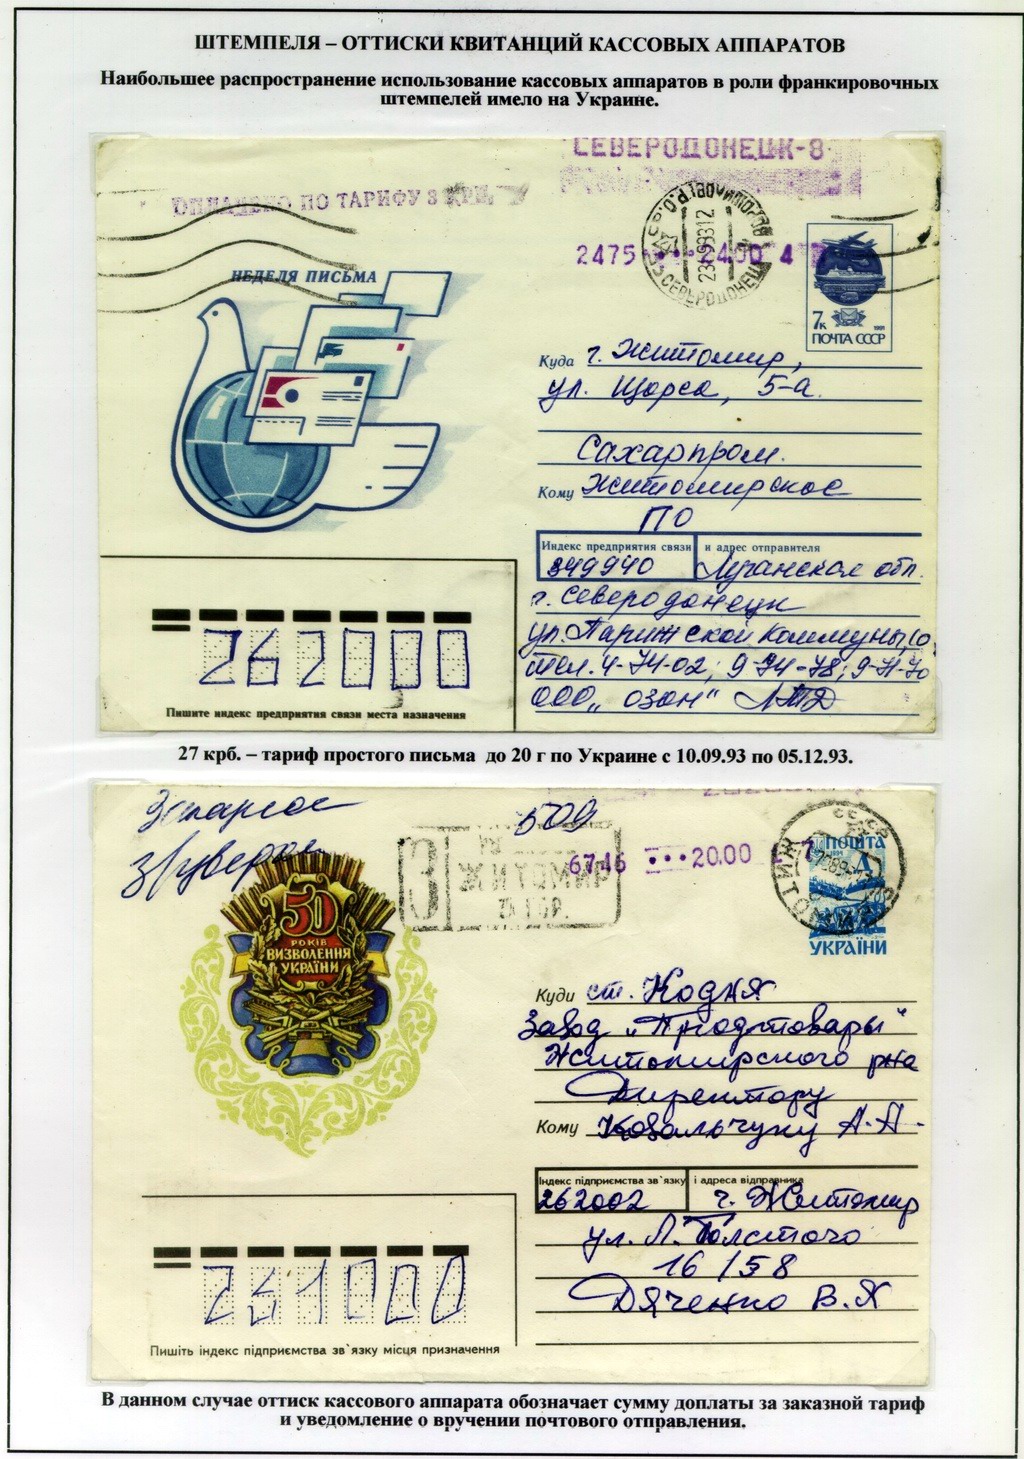 ШТЕМПЕЛЯ – ОТТИСКИ КВИТАНЦИЙ КАССОВЫХ АППАРАТОВ
Наибольшее распространение использование кассовых аппаратов в роли франкировочных
штемпелей имело на Украине.
СЕВЕРОДОНЕЦК-8
ОПЛАЧЕНО ПО ТАРИФУ 3 КРН.
2475 • • • 24.00 4
СЕВЕРОДОНЕЦК
НЕДЕЛЯ ПИСЬМА
7к
1991
ПОЧТА СССР
Куда г. Житомир,
ул. Щорса, 5-а.
Сахарпром.
Кому Житомирское
ПО
Индекс предприятия связи и адрес отправителя
349940 Луганская обл.
г. Северодонецк
ул. Парижской Коммуны, 10
тел. 4-74-02; 9-74-78; 9-71-70
ООО „озон" ЛТД
262000
Пишите индекс предприятия связи места назначения
27 крб. – тариф простого письма до 20 г по Украине с 10.09.93 по 05.12.93.
Заказное
509
З
ЖИТОМИР
6746 • • • 20.00 7
ПОШТА
УКРАЇНИ
50
РОКІВ
ВИЗВОЛЕННЯ
УКРАЇНИ
Куди ст. Кодня
Завод „Продтовары"
Житомирского р-на
Директору
Кому Ковальчуку А.А.
Індекс підприємства зв`язку і адреса відправника
262002 г. Житомир
ул. Л. Толстого
16/58
Дяченко В.Я
261000
Пишіть індекс підприємства зв`язку місця призначення
В данном случае оттиск кассового аппарата обозначает сумму доплаты за заказной тариф
и уведомление о вручении почтового отправления.